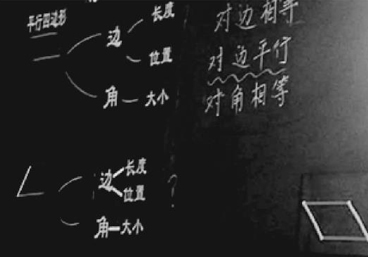 平行四边形
边
长度
位置
角
大小
对边相等
对边平行
对角相等
边
长度
位置
?
角
大小